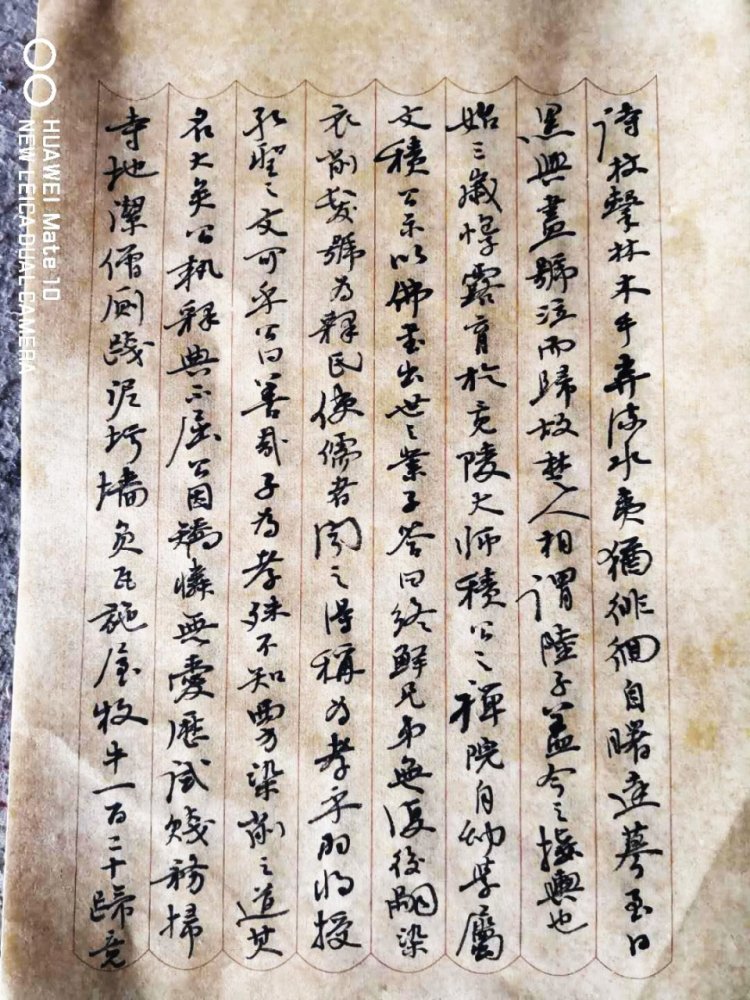 詩杖擊林木手弄流水夷猶徘徊自曙達暮至日
黑興盡號泣而歸故楚人相謂陸子蓋今之接輿也
始三歲惸露育於竟陵大師積公之禪院自幼學屬
文積公示以佛書出世之業子答曰終鮮兄弟無復後嗣染
衣削髮號為釋氏使儒者聞之得稱為孝乎羽將授
孔聖之文可乎公曰善哉子為孝殊不知西方染削之道其
名大矣公執釋典不屈公因矯憐無愛歷試賤務掃
寺地潔僧廁踐泥圬墻負瓦施屋牧牛一百二十蹄竟
HUAWEI Mate 10
NEW LEICA DUAL CAMERA